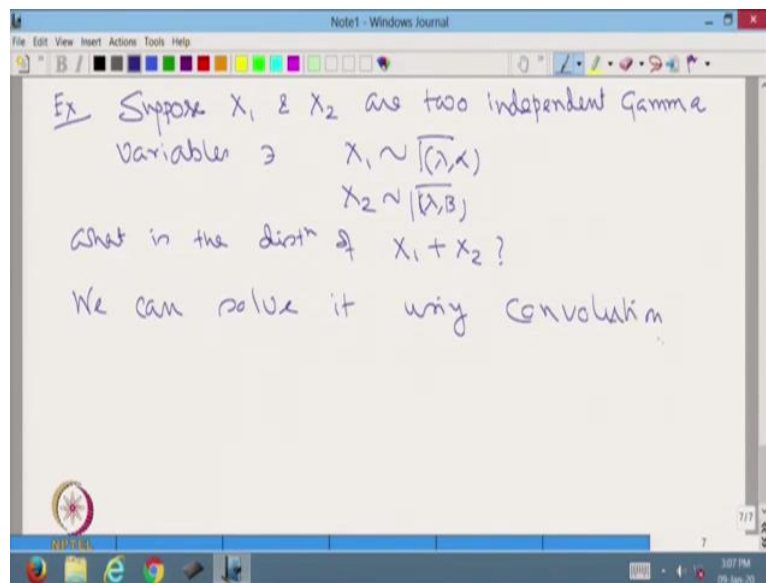 Note1 - Windows Journal
File Edit View Insert Actions Tools Help
B I
Ex Suppose X₁ & X₂ are two independent Gamma
Variables ∋ X₁ ~ Γ(λ,α)
X₂ ~ Γ(λ,β)
What is the distⁿ of X₁ + X₂ ?
We can solve it using Convolution
NPTEL
7/7
7
3:07 PM
09-Jan-20